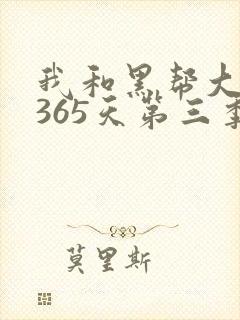 我和黑帮大
365天第三季
莫里斯